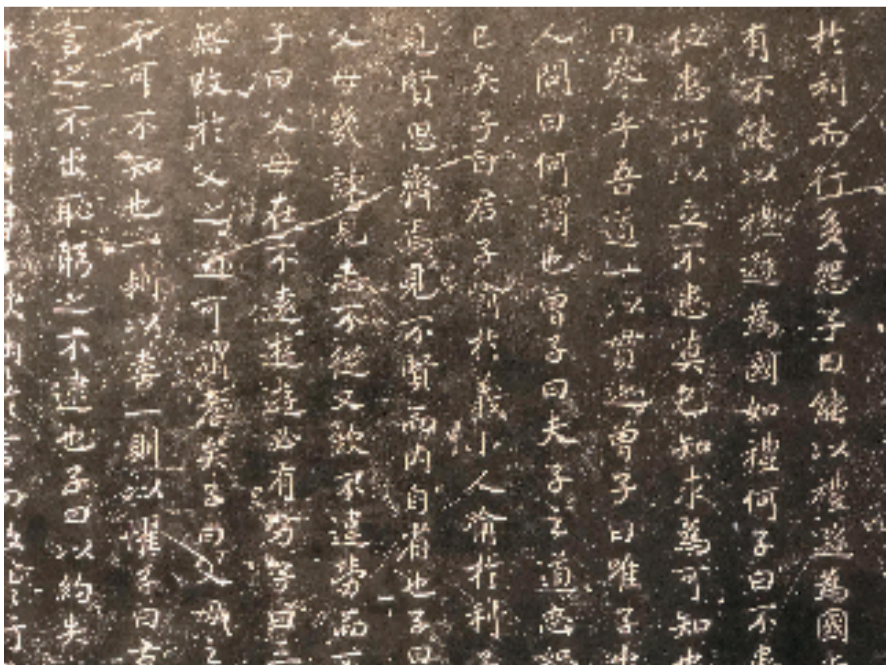 於利而行多怨子曰能以禮遜為國
有不能以禮遜為國如禮何子曰不患
位患所以立不患莫己知求為可知
曰參乎吾道一以貫之曾子曰唯子出
人問曰何謂也曾子曰夫子之道忠恕
已矣子曰君子喻於義小人喻於利子
見賢思齊焉見不賢而內自省也子曰
父母幾諫見志不從又敬不違勞而不
子曰父母在不遠遊遊必有方子曰三
無改於父之道可謂孝矣子曰父母之
不可不知也一則以喜一則以懼子曰古
言之不出恥躬之不逮也子曰以約失